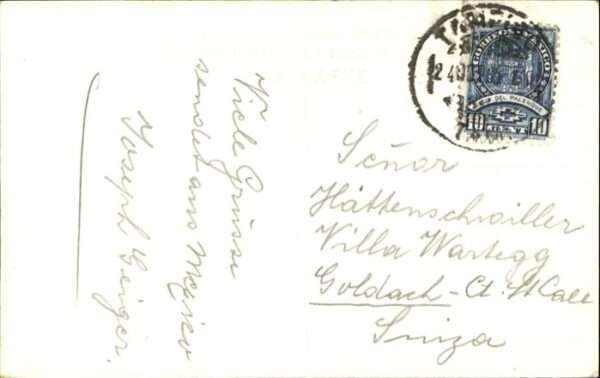 Viele Grüsse
sendet aus Mexico
Joseph Geiger.
CORREOS MEXICO
DEL PALENQUE
10 10
Señor
Hättenschwiller
Villa Wartegg
Goldach - Ct. St Gall
Suiza